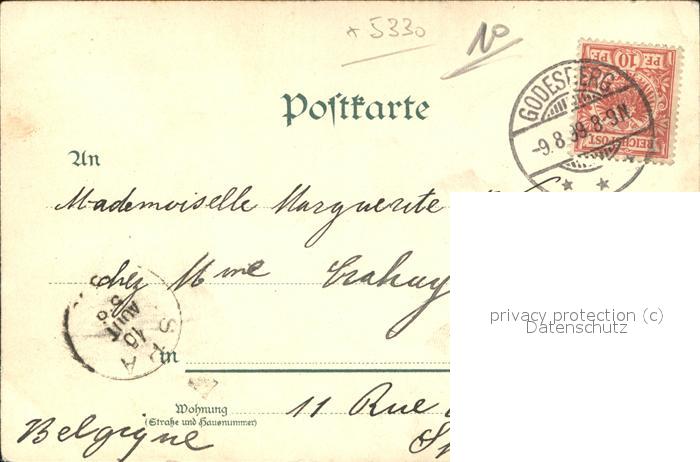 * 5330
10
PF. 10 PF.
REICHSPOST
GODESBERG
-9.8.99.8-9N.
Postkarte
An
Mademoiselle Marguerite
chez Mme Crahay
privacy protection (c)
Datenschutz
SPA
AOUT
in
Wohnung
(Straße und Hausnummer)
11 Rue
Belgique